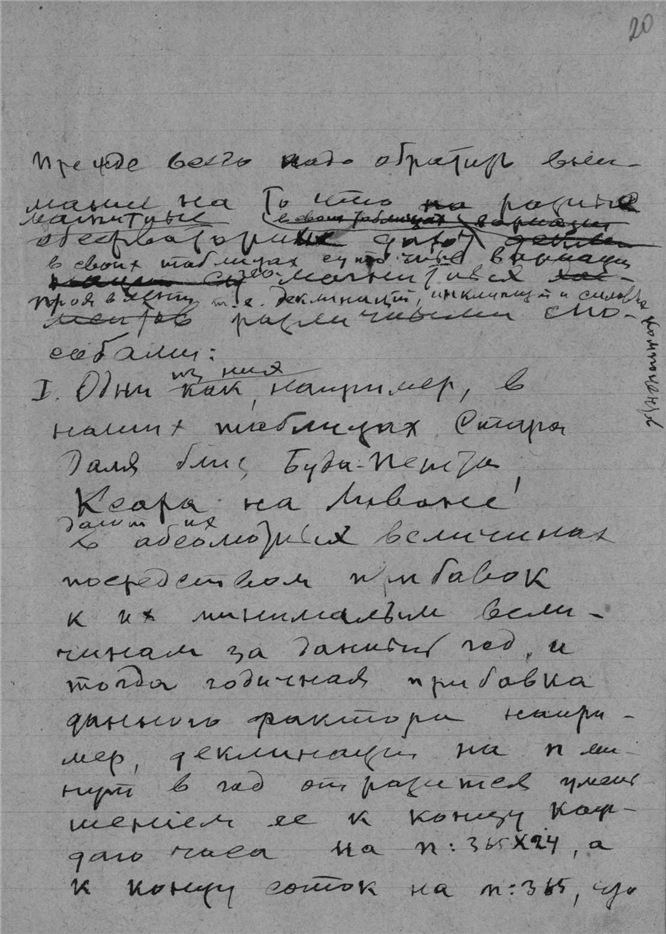 20
Прежде всего надо обратить вни-
мание на то что на разные
магнитные
обсерватории дают
в своих таблицах суточные вариации
гео-магнитных
проявлений, т.е. деклинаций, инклинаций и силовых компонентов
различными спо-
собами:
I. Одни из них как, например, в
наших таблицах Стара
Даля близ Буда-Пешта,
Ксара на Ливане,
дают их
в абсолютных величинах
посредством прибавок
к их минимальным вели-
чинам за данный год, и
тогда годичная прибавка
данного фактора напри-
мер, деклинации на n ми-
нут в год отразится умень
шением ее к концу каж-
даго часа на n:365X24, а
к концу соток на n:365, что